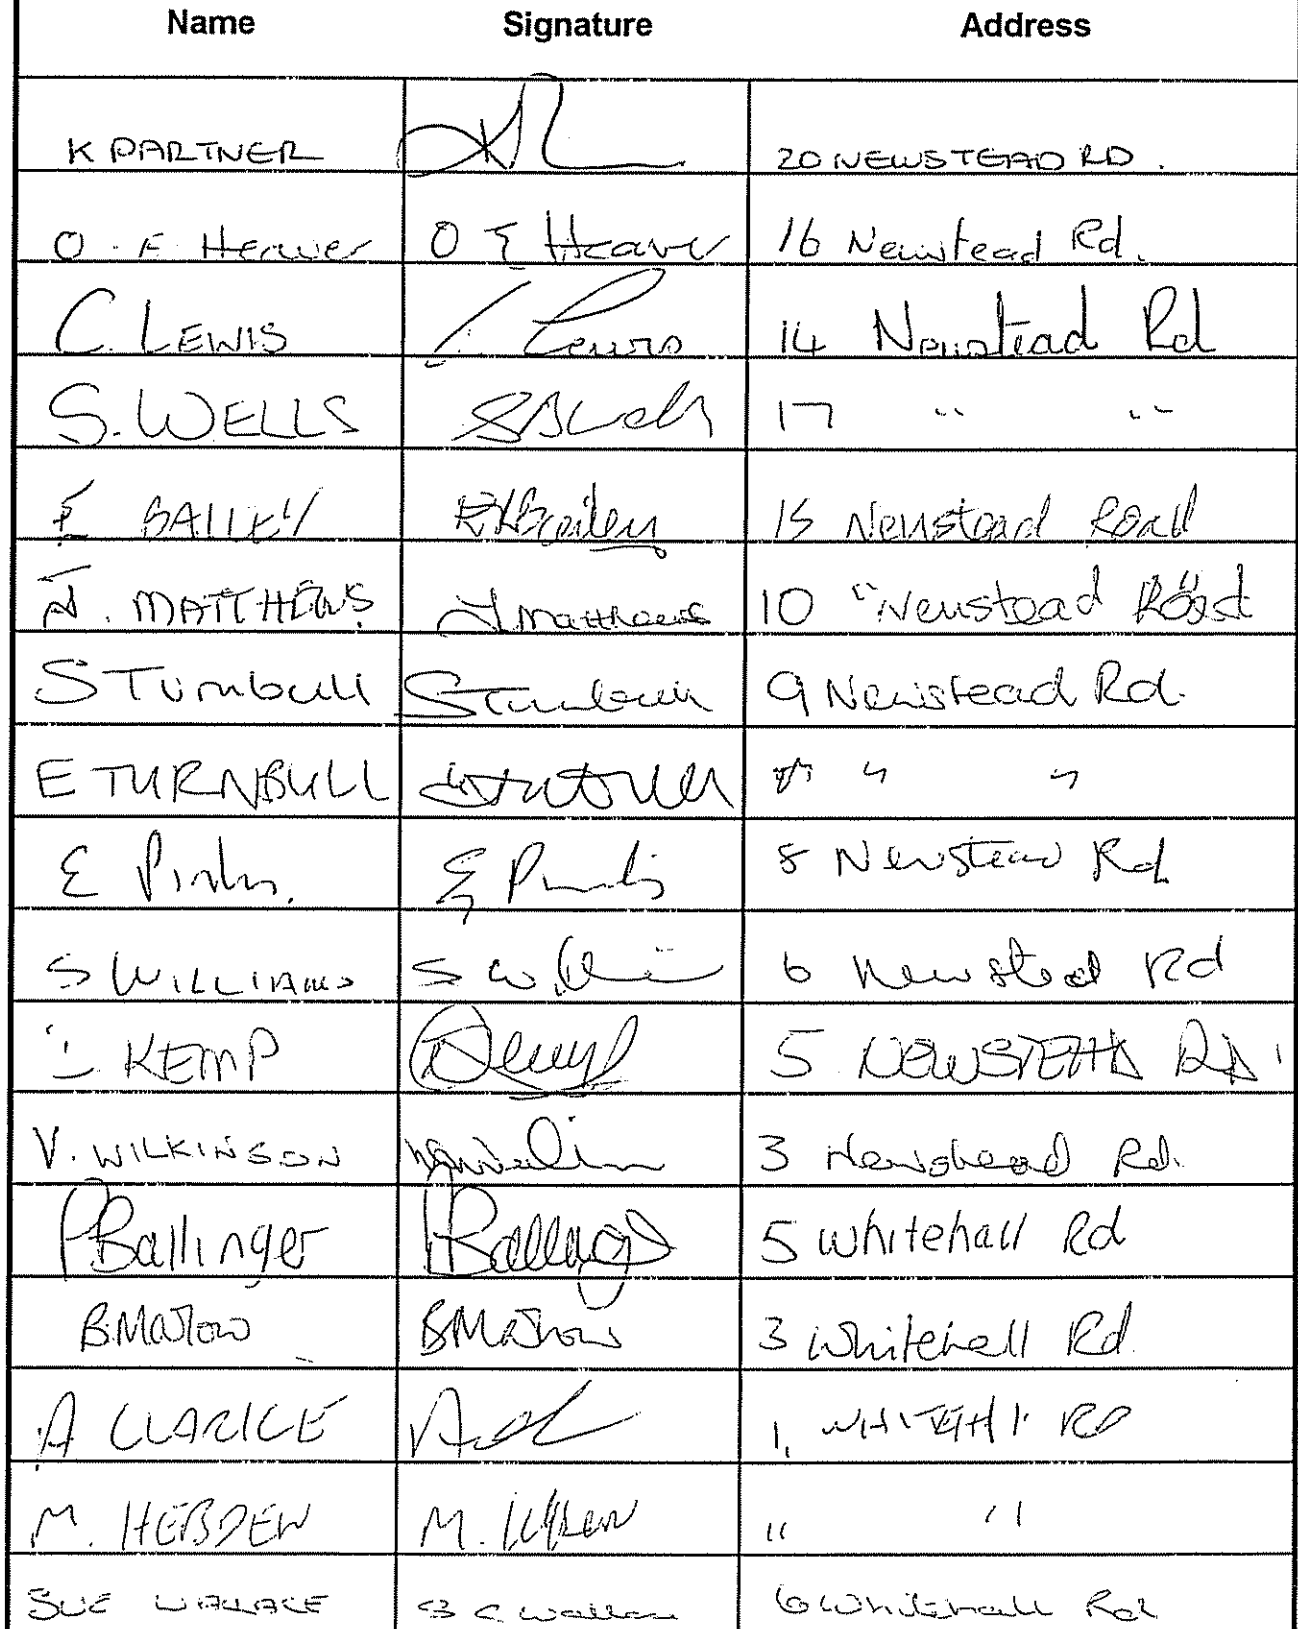 Name Signature Address
K PARTNER 20 NEWSTEAD RD.
O. E. Heaver O E Heaver 16 Newstead Rd.
C. LEWIS C. Lewis 14 Newstead Rd
S. WELLS 17 " "
E BAILEY Bailey 15 Newstead Road
J. MATTHEWS J Matthews 10 "Newstead Road
S Turnbull S Turnbull 9 Newstead Rd.
E TURNBULL " " "
E 8 Newstead Rd
S WILLIAMS S 6 Newstead Rd
KEMP 5 NEWSTEAD RD
V. WILKINSON 3 Newstead Rd.
P Ballinger P Ballinger 5 Whitehall Rd
B. 3 Whitehall Rd.
A CLARKE 1, RD
M. HEBDEN M. Hebden " "
SUE WALLACE S C Wallace 6 Whitehall Rd